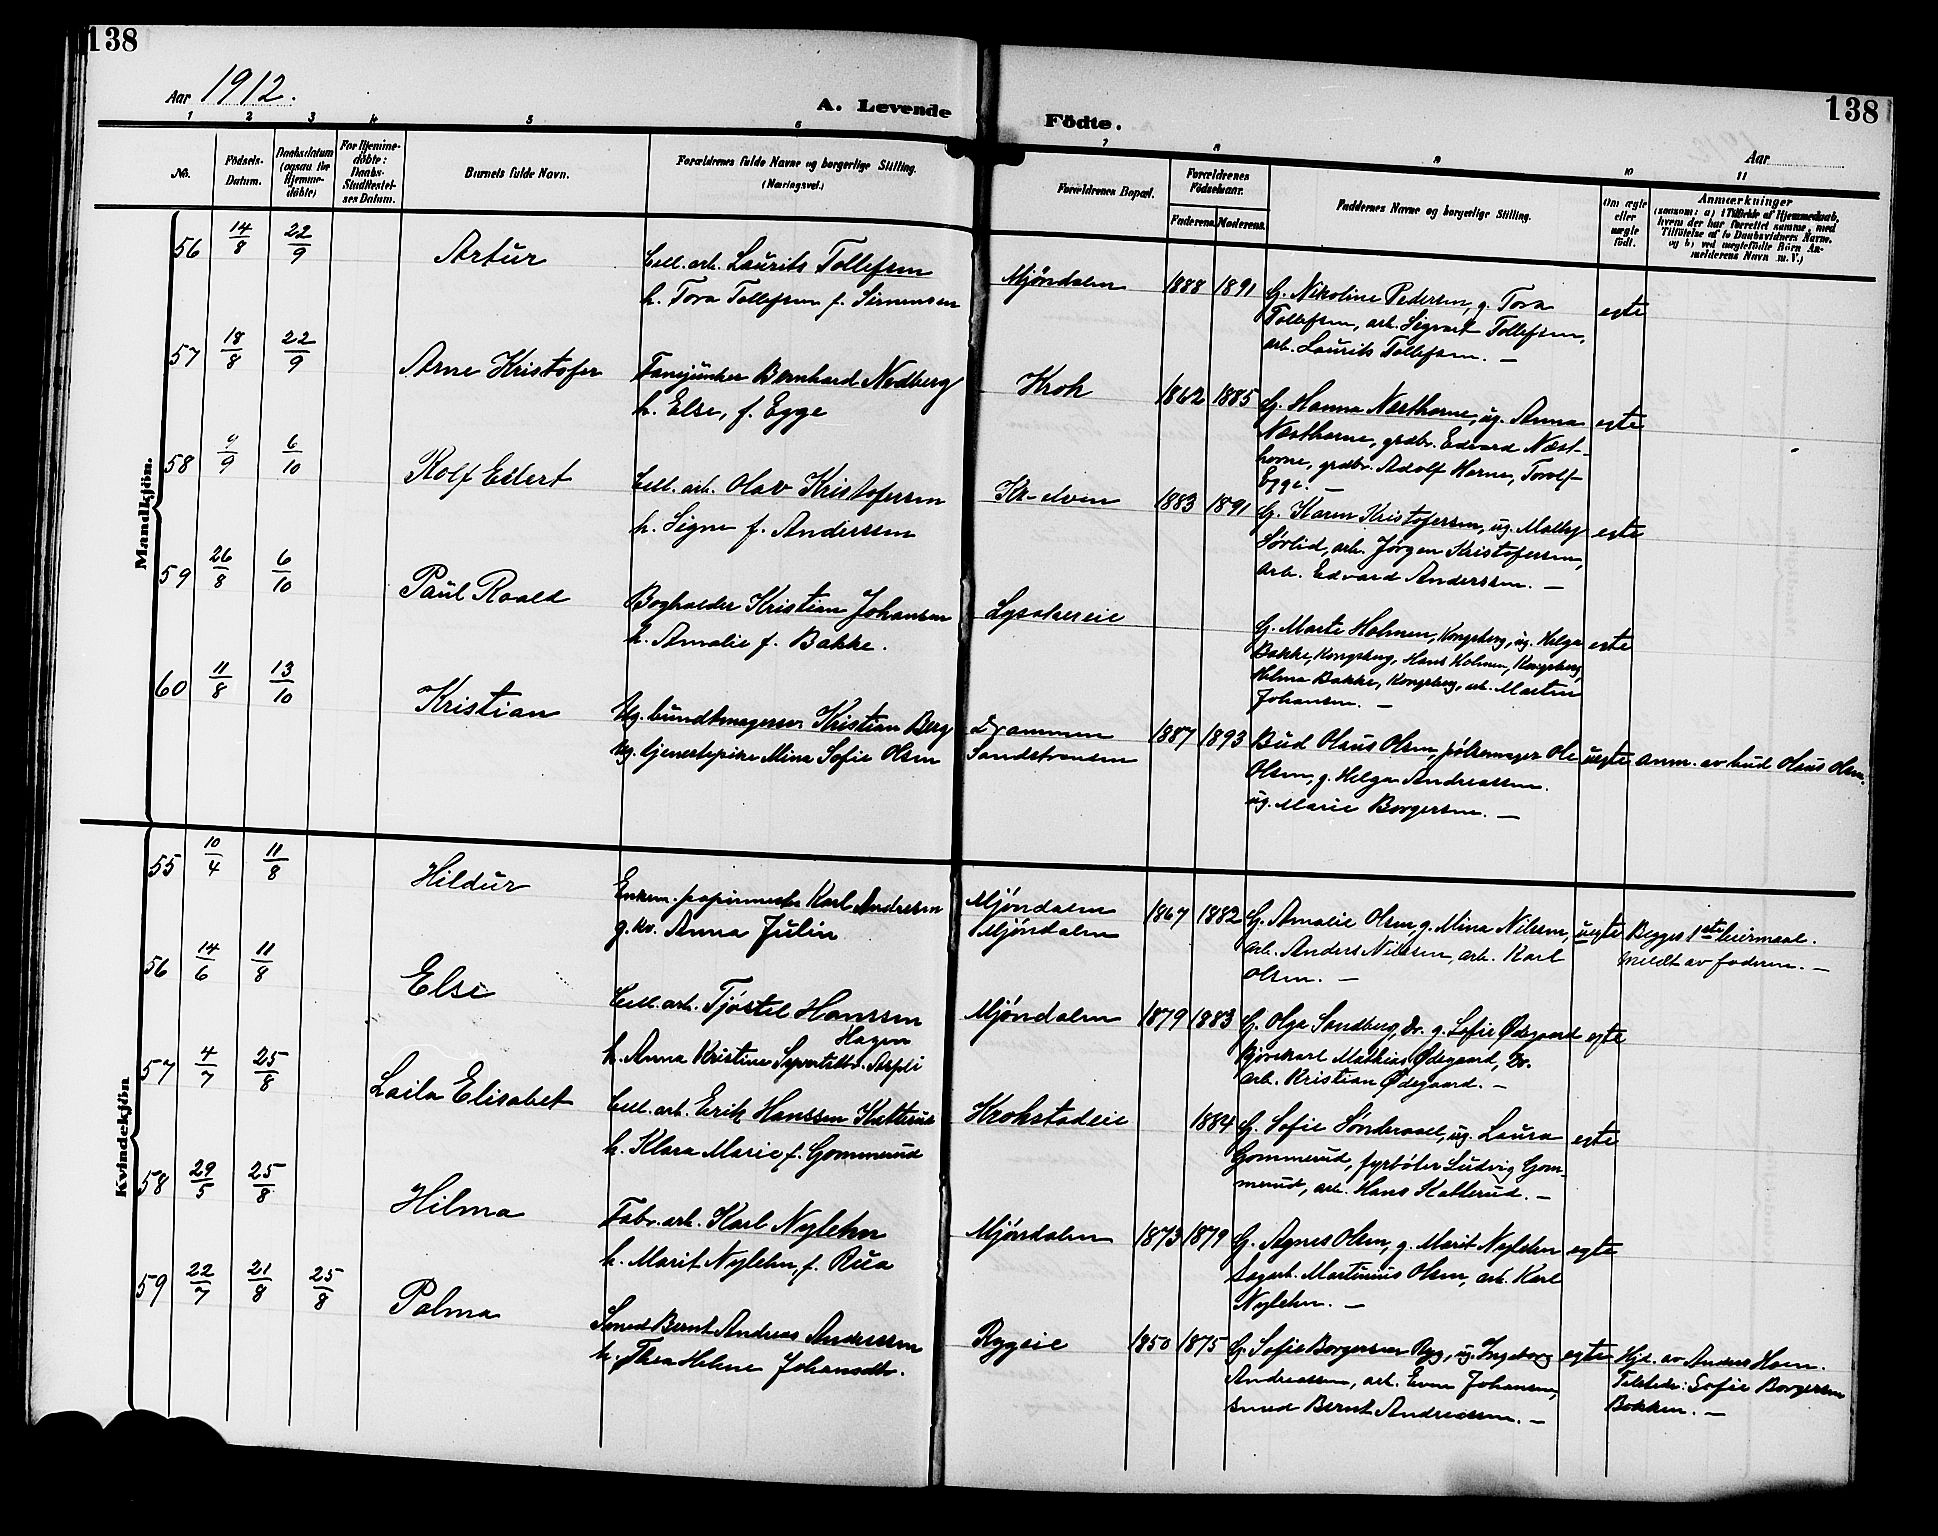 138
138
Aar 1912.
A. Levende
Födte.
Aar
1 2 3 4 5 6 7 8 9 10 11
No.
Födsels-
Datum.
Daabsdatum
(ogsaa for
Hjemme-
döbte)
For Hjemme-
döbte:
Daabs-
Stadfestel-
ses Datum.
Barnets fulde Navn.
Forældrenes fulde Navne og borgerlige Stilling.
(Næringsvei.)
Forældrenes Bopæl.
Forældrenes
Födselsaar.
Faderens. Moderens.
Faddernes Navne og borgerlige Stilling.
Om ægte
eller
uægte
födt.
Anmærkninger
(saasom: a) i Tilfælde af Hjemmedaab,
hvem der har forrettet samme, med
Tilföielse af to Daabsvidners Navne,
og b) ved uægtefödte Börn An-
melderens Navn m. V.)
Mandkjön.
56 14/8 22/9 Artur
Cell. arb. Laurits Tollefsen
h. Tora Tollefsen f. Simensen
Mjøndalen 1888 1891
G. Nikoline Pedersen, g. Tora
Tollefsen, arb. Sigvart Tollefsen,
arb. Laurits Tollefsen. —
egte
57 18/8 22/9 Arne Kristofer
Fanejunker Bernhard Nedberg
h. Else, f. Egge
Krok 1862 1885
G. Hanna Næsthorne, ug. Anna
Næsthorne, grdbr. Edvard Næst-
horne, grdbr. Adolf Horne, Torolf
Egge. —
egte
58 9/9 6/10 Rolf Eilert
Cell. arb. Olav Kristofersen
h. Signe f. Anderssen
Kr-elven 1883 1891
G. Karen Kristofersen, ug.
Sørlid, arb. Jørgen Kristofersen,
arb. Edvard Anderssen. —
egte
59 26/8 6/10 Paul Roald
Bogholder Kristian Johansen
h. Amalie f. Bakke.
G. Marte Holmen, Kongsberg, ug. Helga
Bakke, Kongsberg, Hans Holmen, Kongsberg,
Hilma Bakke, Kongsberg, arb. Martin
Johansen. —
egte
60 11/8 13/10 Kristian
Ug. bundtmagersv. Kristian Berg
ug. tjenestepike Mina Sofie Olsen
Drammen
Sandstranden 1887 1893
Bud Olaus Olsen, pølsemager Ole
Olsen, g. Helga Andreassen.
ug. Marie Borgersen. —
uegte
anm. av bud Olaus Olsen.
Kvindekjön
55 10/4 11/8 Hildur
Enkem. papirmester Karl Andresen
g. kv. Anna Julin
Mjøndalen
Mjøndalen 1867 1882
G. Amalie Olsen, g. Mina Nilsen,
arb. Anders Nilsen, arb. Karl
Olsen. —
uegte
Begges 1ste leiermaal.
Meldt av faderen. —
56 14/6 11/8 Else
Cell. arb. Tjøstel Hanssen
Hagen
h. Anna Kristine Syvertsdtr. Aspli
Mjøndalen 1879 1883
G. Olga Sandberg, Dr. g. Sofie Ødegaard
kjørekarl Mathias Ødegaard, Dr.
arb. Kristian Ødegaard. —
egte
57 4/7 25/8 Laila Elisabet
Cell. arb. Erik Hanssen Katterud
h. Klara Marie f. Gommerud
Krokstadeie 1884
G. Sofie Sønderaael, ug. Laura
Gommerud, fyrbøter Ludvig Gom-
merud, arb. Hans Katterud. —
egte
58 29/5 25/8 Hilma
Fabr. arb. Karl Nylehn
h. Marit Nylehn, f. Rua
Mjøndalen 1873 1879
G. Agnes Olsen, g. Marit Nylehn
sagarb. Martinius Olsen, arb. Karl
Nylehn. —
egte
59 22/7 21/8 25/8 Palma
Smed Bernt Andreas Anderssen
h. Thea Helene Johansdtr.
Ryggeie 1850 1875
G. Sofie Borgersen Ryg, ug. Ingeborg
Andreassen, arb. Even Johansen,
smed Bernt Andreassen. —
egte
Hjd. av Anders Hoen.
Tilstede: Sofie Borgersen
Bakken. —